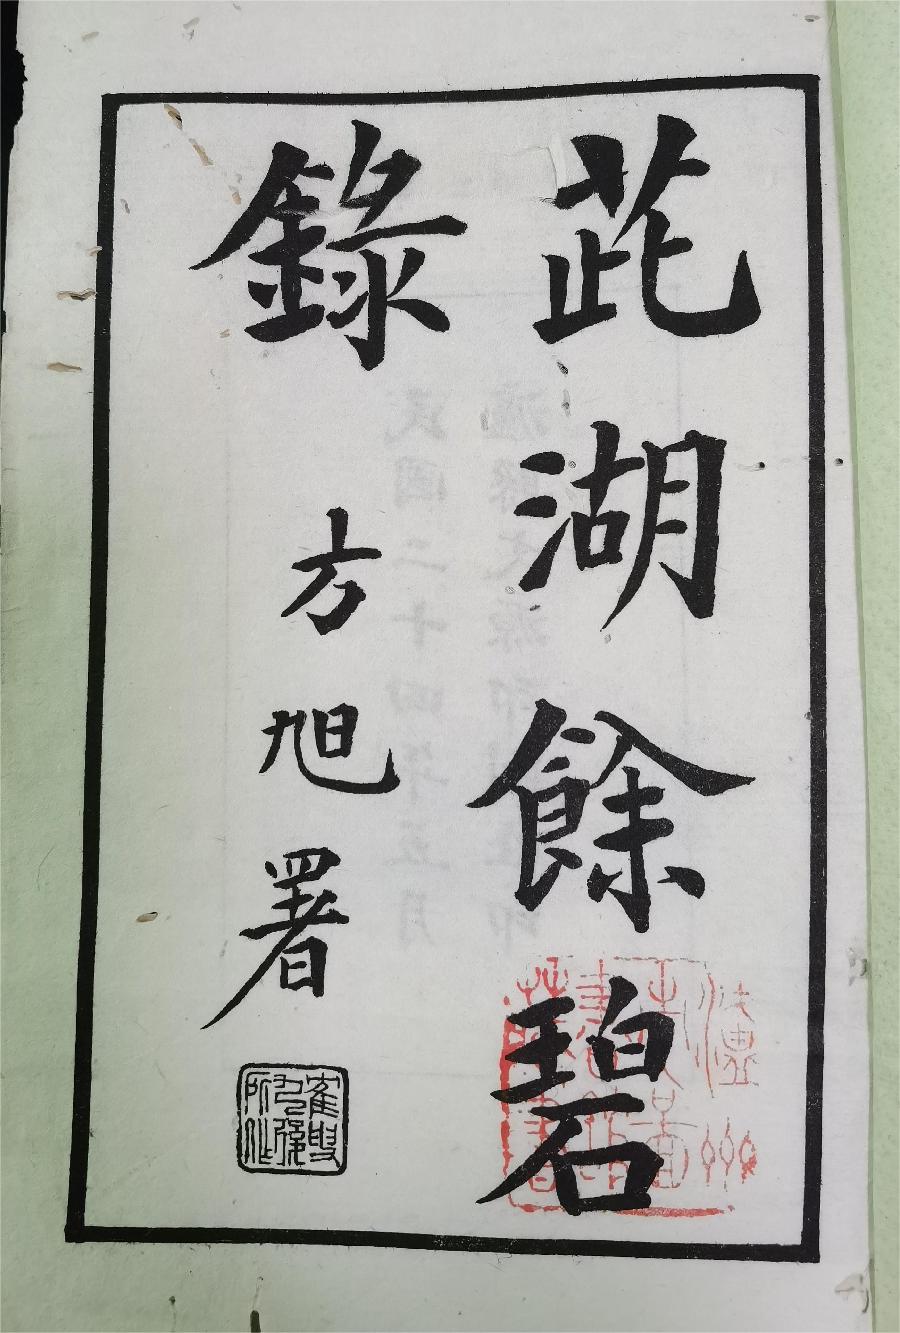 茈湖餘碧
錄 方旭署